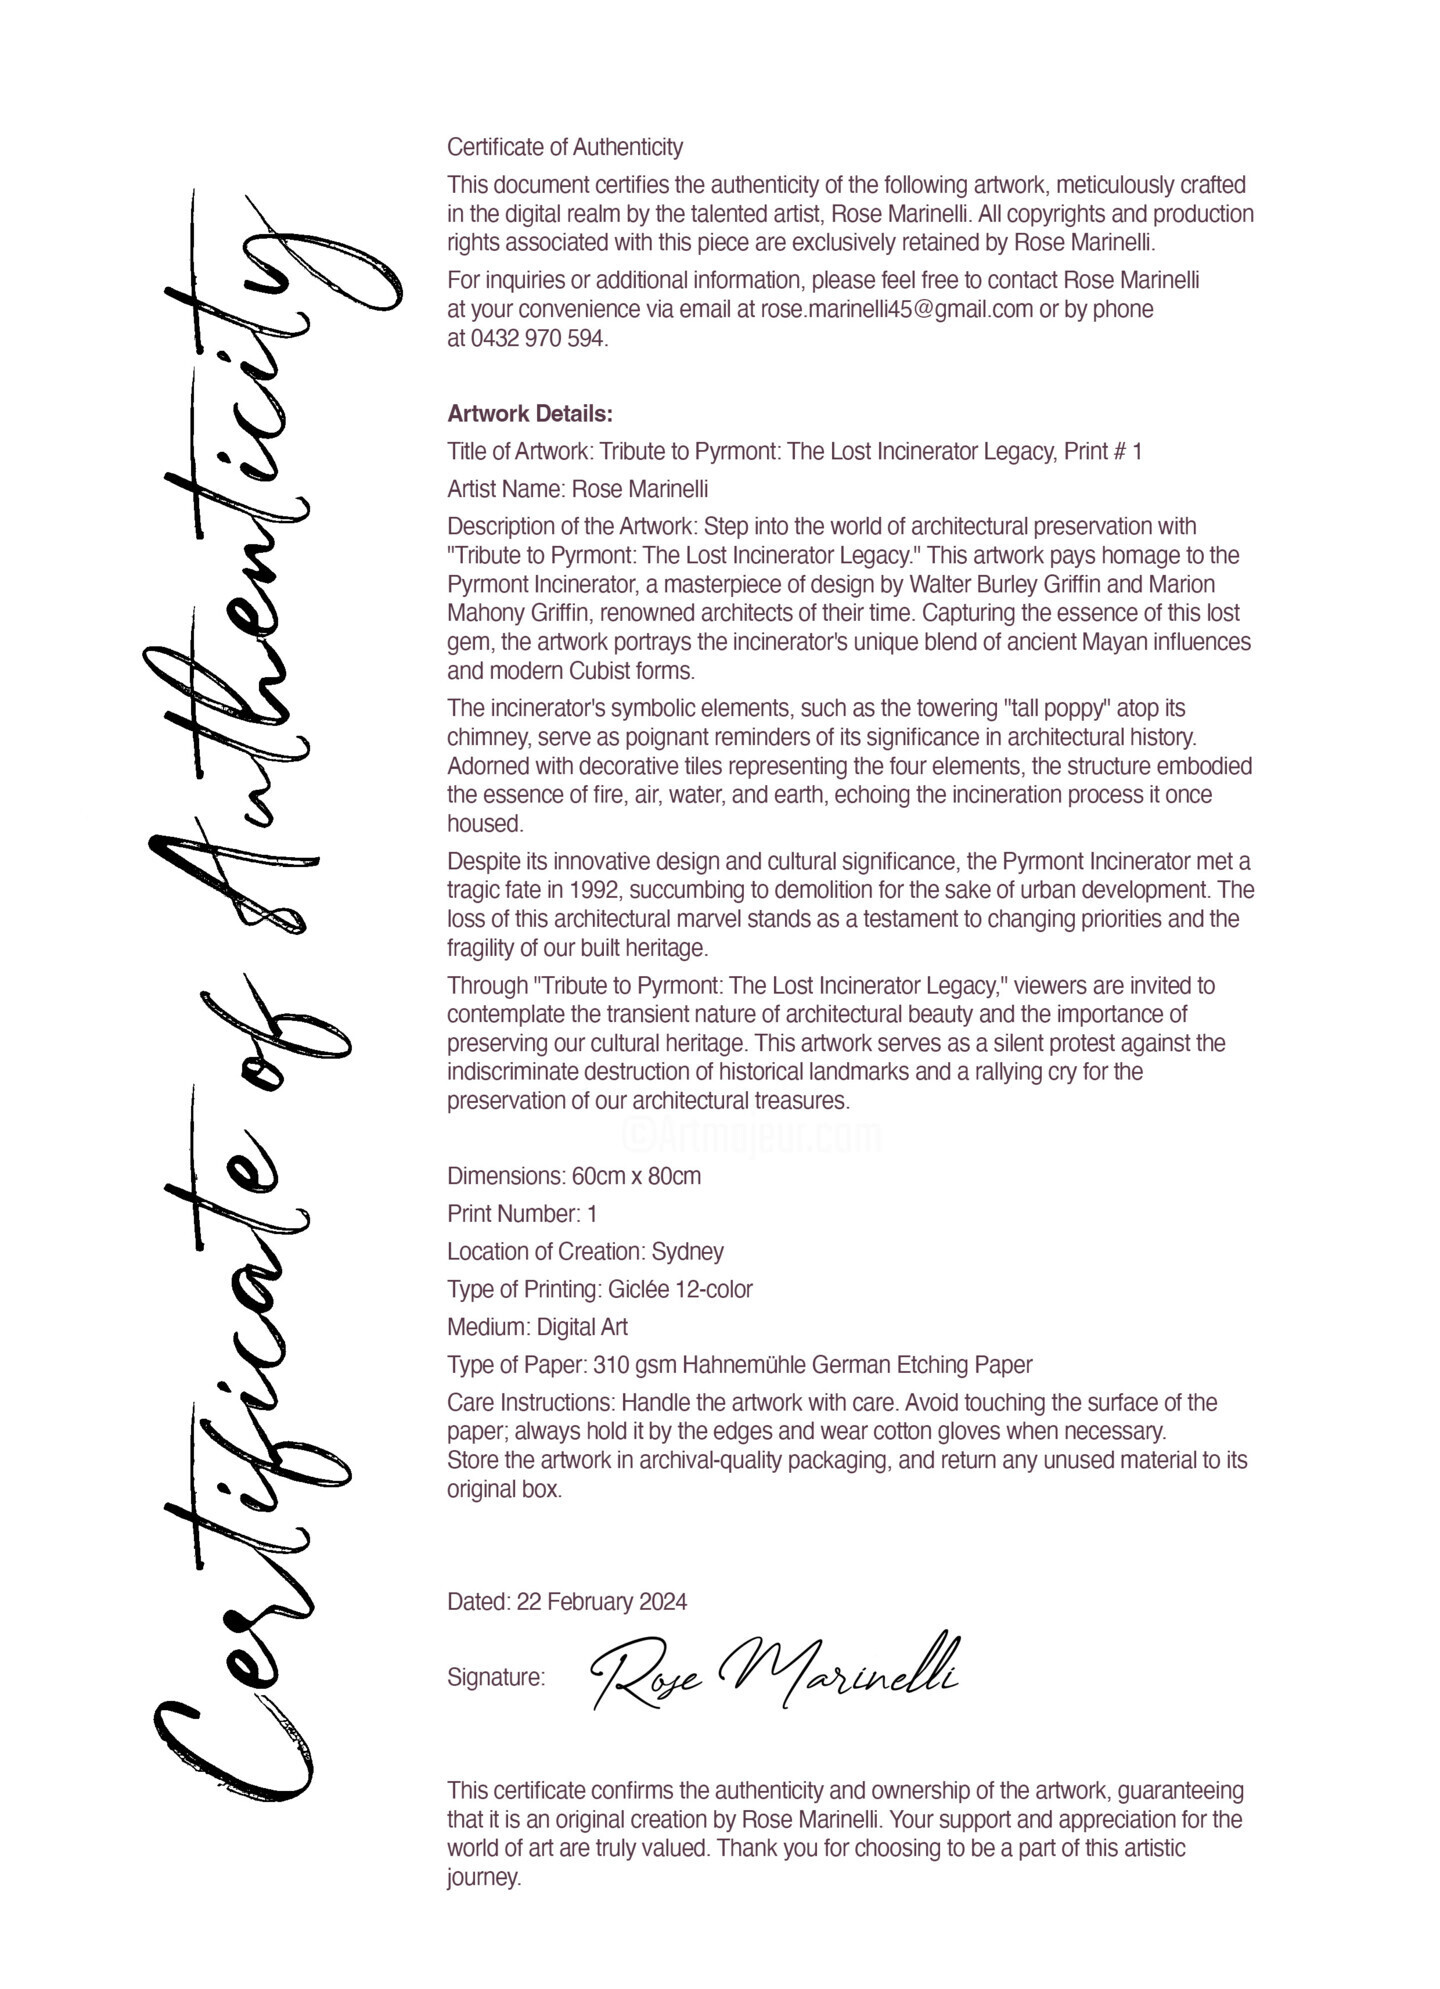 Certificate of Authenticity
Certificate of Authenticity
This document certifies the authenticity of the following artwork, meticulously crafted
in the digital realm by the talented artist, Rose Marinelli. All copyrights and production
rights associated with this piece are exclusively retained by Rose Marinelli.
For inquiries or additional information, please feel free to contact Rose Marinelli
at your convenience via email at rose.marinelli45@gmail.com or by phone
at 0432 970 594.
Artwork Details:
Title of Artwork: Tribute to Pyrmont: The Lost Incinerator Legacy, Print # 1
Artist Name: Rose Marinelli
Description of the Artwork: Step into the world of architectural preservation with
"Tribute to Pyrmont: The Lost Incinerator Legacy." This artwork pays homage to the
Pyrmont Incinerator, a masterpiece of design by Walter Burley Griffin and Marion
Mahony Griffin, renowned architects of their time. Capturing the essence of this lost
gem, the artwork portrays the incinerator's unique blend of ancient Mayan influences
and modern Cubist forms.
The incinerator's symbolic elements, such as the towering "tall poppy" atop its
chimney, serve as poignant reminders of its significance in architectural history.
Adorned with decorative tiles representing the four elements, the structure embodied
the essence of fire, air, water, and earth, echoing the incineration process it once
housed.
Despite its innovative design and cultural significance, the Pyrmont Incinerator met a
tragic fate in 1992, succumbing to demolition for the sake of urban development. The
loss of this architectural marvel stands as a testament to changing priorities and the
fragility of our built heritage.
Through "Tribute to Pyrmont: The Lost Incinerator Legacy," viewers are invited to
contemplate the transient nature of architectural beauty and the importance of
preserving our cultural heritage. This artwork serves as a silent protest against the
indiscriminate destruction of historical landmarks and a rallying cry for the
preservation of our architectural treasures.
©Artmajeur.com
Dimensions: 60cm x 80cm
Print Number: 1
Location of Creation: Sydney
Type of Printing: Giclée 12-color
Medium: Digital Art
Type of Paper: 310 gsm Hahnemühle German Etching Paper
Care Instructions: Handle the artwork with care. Avoid touching the surface of the
paper; always hold it by the edges and wear cotton gloves when necessary.
Store the artwork in archival-quality packaging, and return any unused material to its
original box.
Dated: 22 February 2024
Signature: Rose Marinelli
This certificate confirms the authenticity and ownership of the artwork, guaranteeing
that it is an original creation by Rose Marinelli. Your support and appreciation for the
world of art are truly valued. Thank you for choosing to be a part of this artistic
journey.